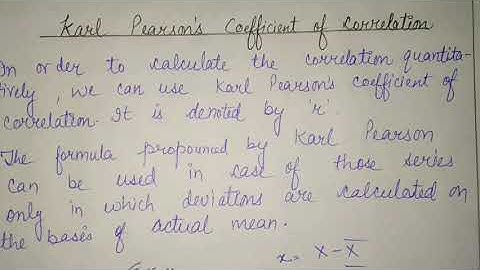 Karl Pearson's Coefficient of correlation
In order to calculate the correlation quantita-
tively, we can use Karl Pearson's coefficient of
correlation. It is denoted by 'r'.
The formula propounded by Karl Pearson
can be used in case of those series
only in which deviations are calculated on
the bases of actual mean.
x = X - X̅